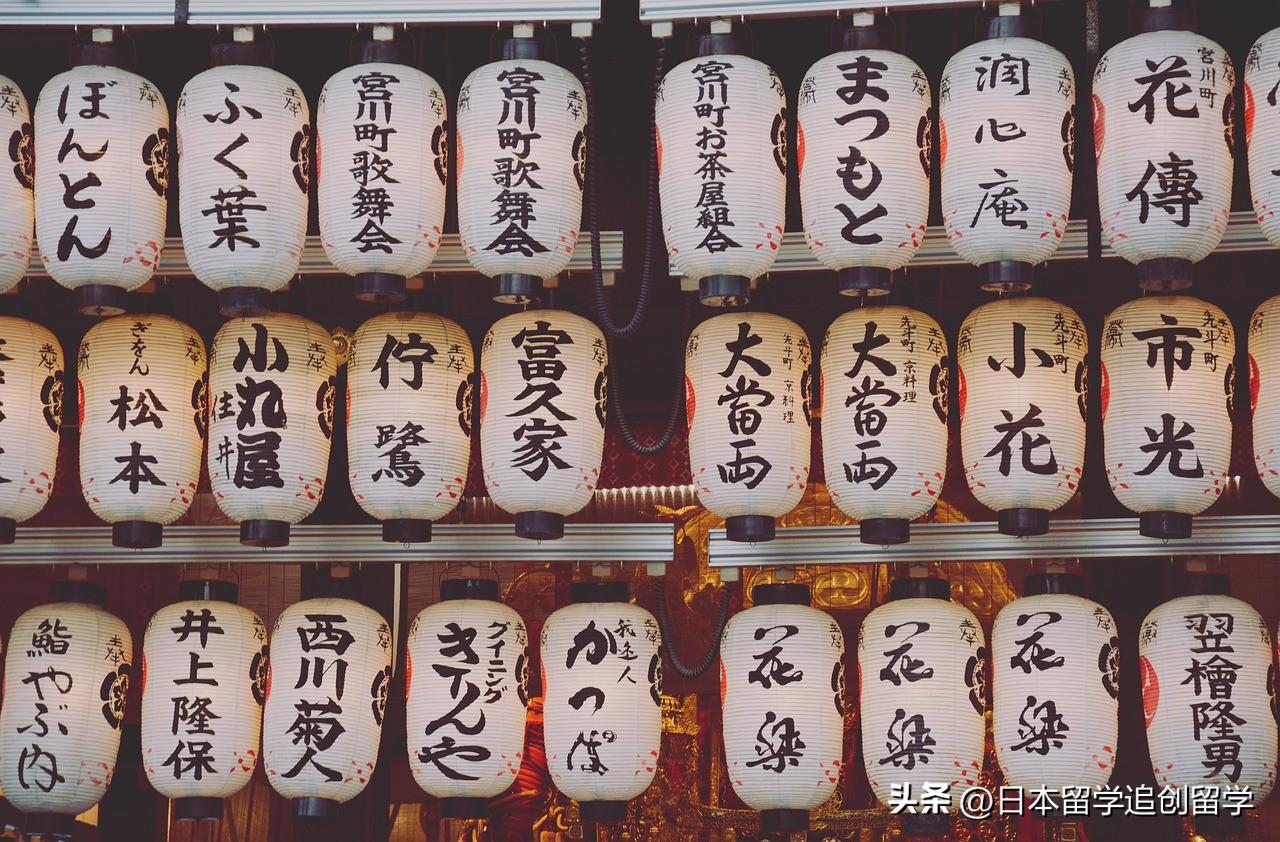 ぼんとん
ふく葉
宮川町歌舞会
宮川町歌舞会
宮川町お茶屋組合
まつもと
潤心庵
宮川町
花傳
ぎをん
松本
小丸屋
住井
佇鷺
富久家
先斗町 京料理
大當両
先斗町 京料理
大當両
先斗町
小花
先斗町
市光
鮨やぶ内
井上隆保
西川菊人
グイニング
きりんや
かつ
花梁
花梁
花梁
翌檜隆男
头条 @日本留学追创留学